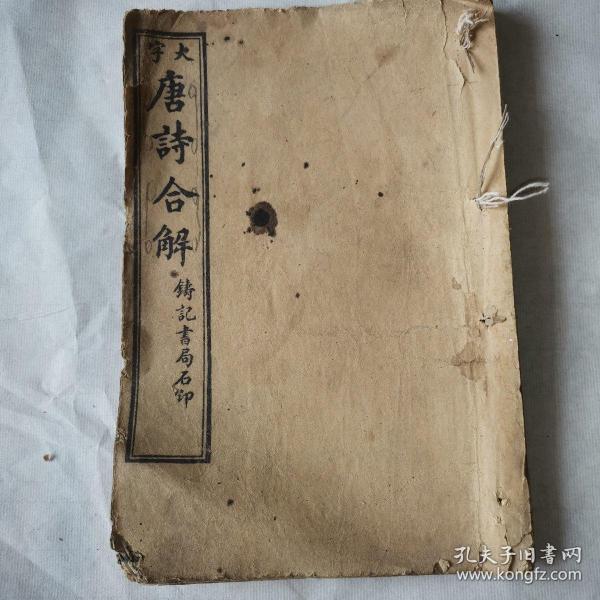 大字
唐詩合解
鑄記書局石印
孔夫子旧書网
www.kongfz.com